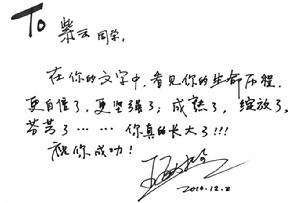 To 紫云同学,
在你的文字中,看见你的生命历程,
更自信了,更坚强了;成熟了,绽放了,
芬芳了……你真的长大了!!!
祝你成功!
2010.12.2